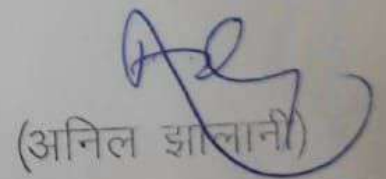 (अनिल झालानी)